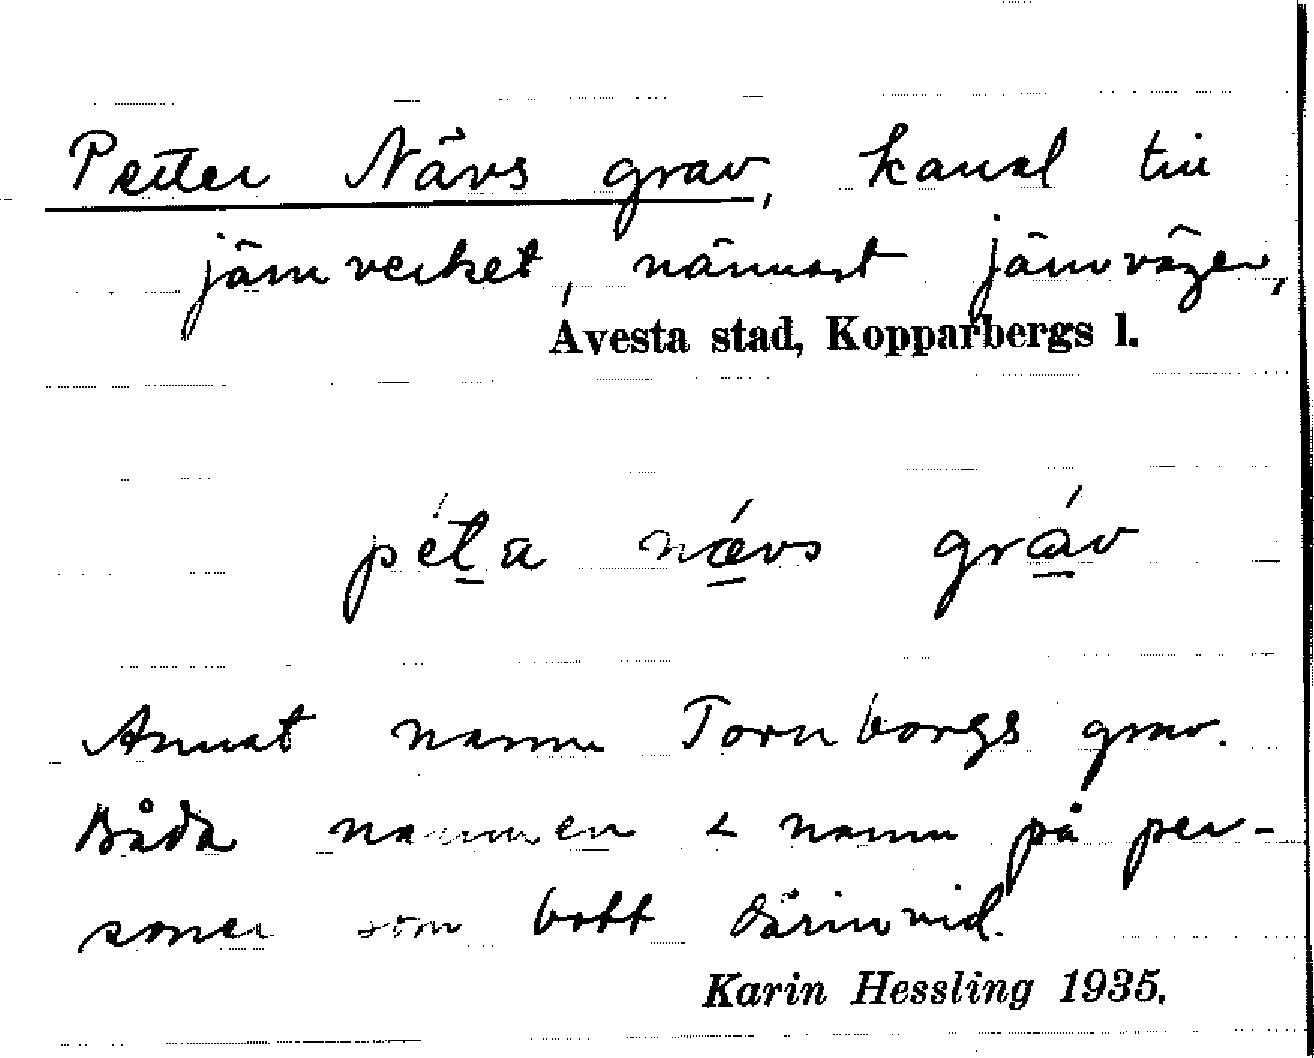 Petter Nävs grav, kanal till
järnverket, närmast järnvägen,
Avesta stad, Kopparbergs l.
péta nǽvs gráv
Annat namn Tornborgs grav.
Båda namnen < namn på per-
soner som bott därinvid.
Karin Hessling 1935.